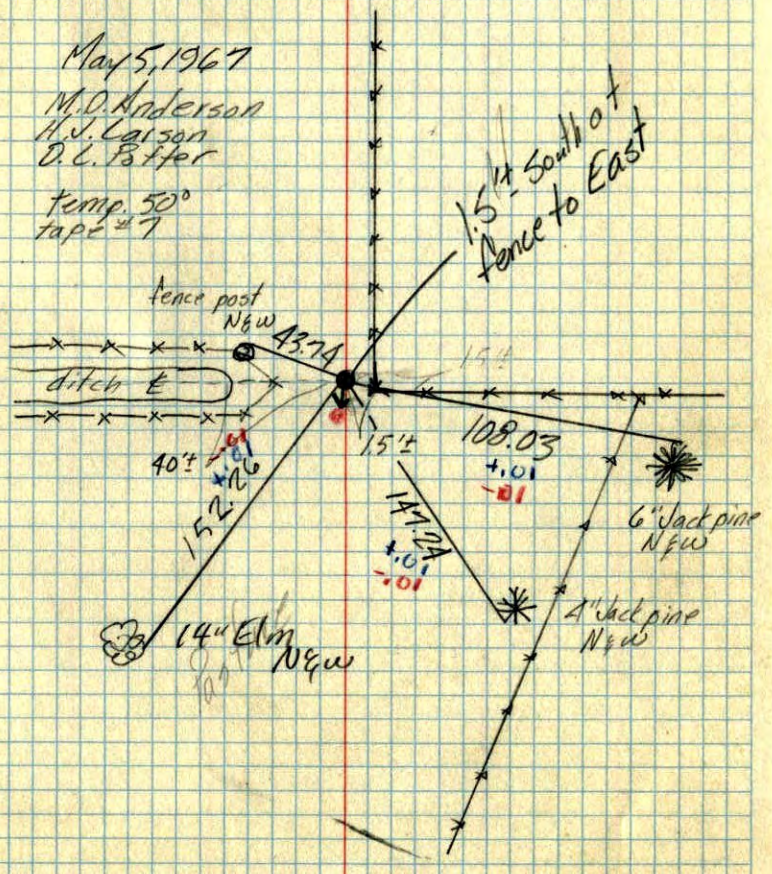 May 5, 1967
M.D. Anderson
H.J. Larson
D.L. Potter
temp. 50°
tape #7
1.5'± South of
fence to East
fence post
N&W
43.74
ditch
15'±
108.03
+.01
-.01
40'±
-.01
+.01
152.26
147.24
+.01
-.01
6" Jack pine
N&W
4" Jack pine
N&W
14" Elm
N&W